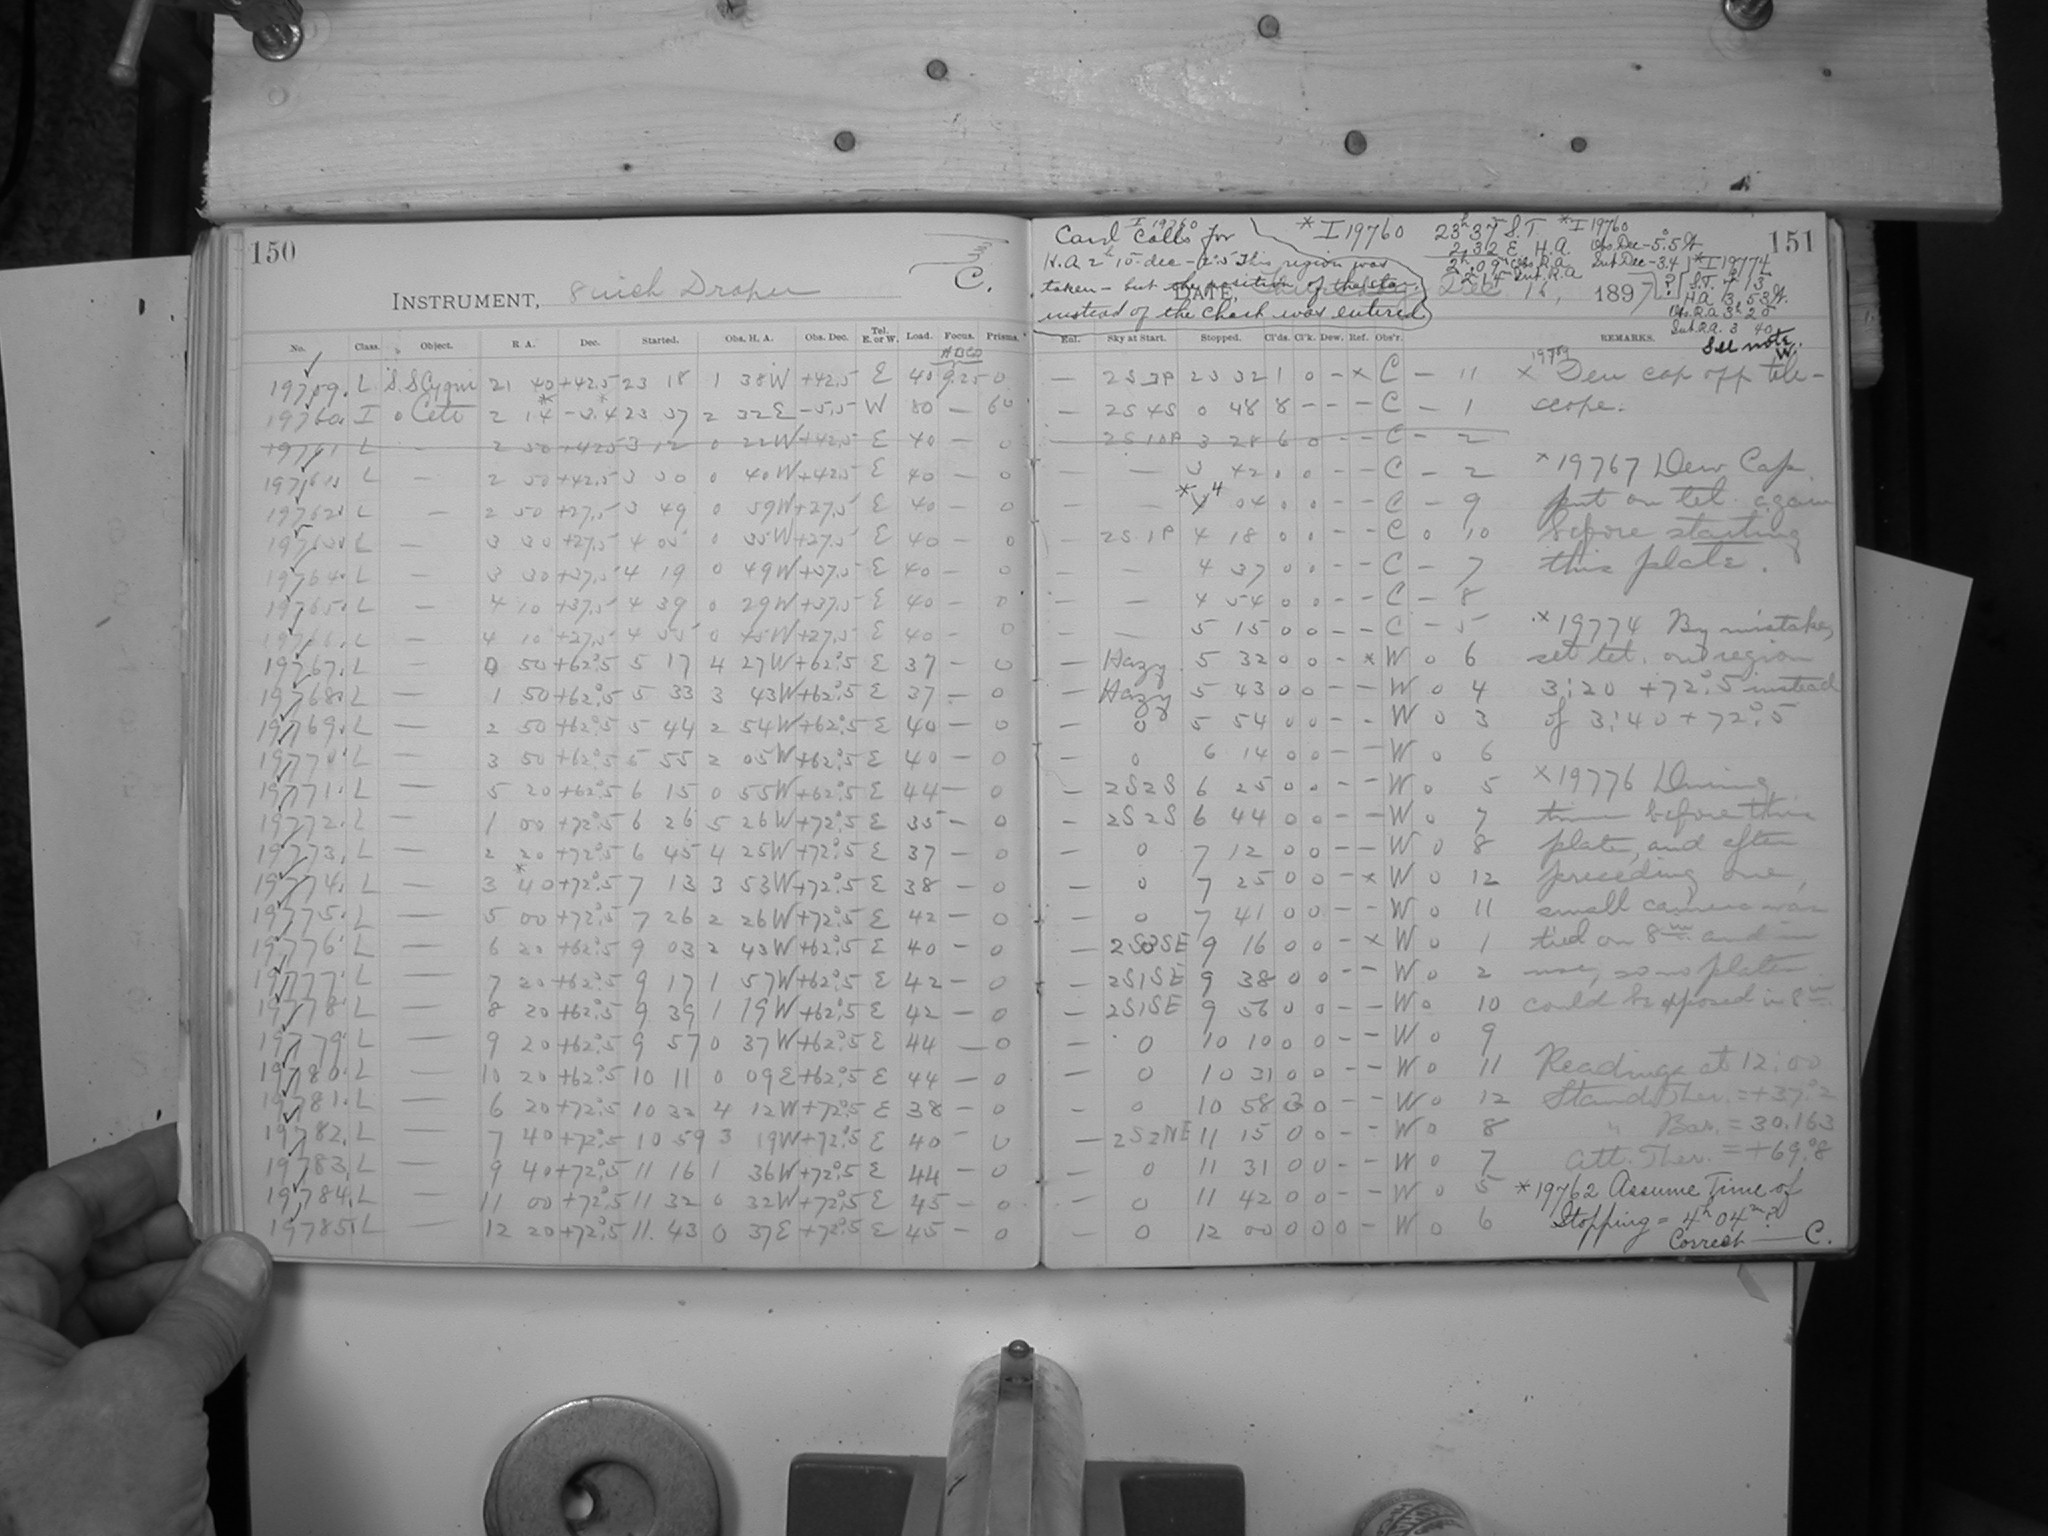 150
C.
INSTRUMENT, 8 inch Draper
No. Class. Object. R A. Dec. Started. Obs. H. A. Obs. Dec. Tel. E. or W. Load. Focus. Prisms.
ABCD
19759. L S.S Cygni 21 40 +42.5 23 18 1 38W +42.5 E 40 9.25 0
19760. I o Ceti 2 14* -3.4* 23 37 2 32E -5.5 W 80 — 60
19761 L - 2 50 +42.5 3 12 0 22W +42.5 E 40 - 0
19761. L - 2 50 +42.5 3 30 0 40W +42.5 E 40 - 0
19762. L - 2 50 +27.5 3 49 0 59W +27.5 E 40 - 0
19763. L - 3 30 +27.5 4 05 0 35W +27.5 E 40 - 0
19764. L - 3 30 +37.5 4 19 0 49W +37.5 E 40 - 0
19765. L - 4 10 +37.5 4 39 0 29W +37.5 E 40 - 0
19766. L - 4 10 +27.5 4 55 0 45W +27.5 E 40 - 0
19767. L — 0 50 +62°.5 5 17 4 27W +62°.5 E 37 - 0
19768. L — 1 50 +62°.5 5 33 3 43W +62°.5 E 37 - 0
19769. L — 2 50 +62°.5 5 44 2 54W +62°.5 E 40 - 0
19770. L — 3 50 +62°.5 5 55 2 05W +62°.5 E 40 - 0
19771. L — 5 20 +62°.5 6 15 0 55W +62°.5 E 44 - 0
19772. L — 1 00 +72°.5 6 26 5 26W +72°.5 E 35 - 0
19773. L — 2 20 +72°.5 6 45 4 25W +72°.5 E 37 - 0
19774. L — 3 *40 +72°.5 7 13 3 53W +72°.5 E 38 - 0
19775. L — 5 00 +72°.5 7 26 2 26W +72°.5 E 42 - 0
19776. L — 6 20 +62°.5 9 03 2 43W +62°.5 E 40 - 0
19777. L — 7 20 +62°.5 9 17 1 57W +62°.5 E 42 - 0
19778. L — 8 20 +62°.5 9 39 1 19W +62°.5 E 42 - 0
19779. L — 9 20 +62°.5 9 57 0 37W +62°.5 E 44 - 0
19780. L — 10 20 +62°.5 10 11 0 09E +62°.5 E 44 - 0
19781. L — 6 20 +72°.5 10 32 4 12W +72°.5 E 38 - 0
19782. L — 7 40 +72°.5 10 59 3 19W +72°.5 E 40 - 0
19783. L — 9 40 +72°.5 11 16 1 36W +72°.5 E 44 - 0
19784. L — 11 00 +72°.5 11 32 0 32W +72°.5 E 45 - 0
19785. L — 12 20 +72°.5 11 43 0 37E +72°.5 E 45 - 0
151
I 19760
Card Calls for
H.A 2h 15 dec - 2.5 This region was
taken - but the position of the star
instead of the Check was entered
*I 19760 23h 37 S.T. *I 19760
2 32 E H.A. Obs. Dec -5.5
2h 09m Obs. R.A Sut. Dec -3.4
2 14m Sut. R.A
*I 19774
S.T. 7 13
H.A 3 53 W.
Obs. R.A 3h 20
Sut. R.A. 3 40
See note
W.
DATE, Dec 16, 1897
Col. Sky at Start. Stopped. Cl'ds. Cl'k. Dew. Ref. Obs'r. REMARKS.
— 2S3P 23 32 1 0 - × C - 11
— 2S4S 0 48 8 - - - C - 1
— 2S10P 3 28 6 0 - - C - 2
— — 3 42 0 0 - - C - 2
— — *4 04 0 0 - - C - 9
— 2S1P 4 18 0 0 - - C 0 10
— — 4 37 0 0 - - C - 7
— — 4 54 0 0 - - C - 8
— — 5 15 0 0 - - C - 5
— Hazy 5 32 0 0 - × W 0 6
— Hazy 5 43 0 0 - - W 0 4
— 0 5 54 0 0 - - W 0 3
— 0 6 14 0 0 - - W 0 6
— 2S2S 6 25 0 0 - - W 0 5
— 2S2S 6 44 0 0 - - W 0 7
— 0 7 12 0 0 - - W 0 8
— 0 7 25 0 0 - × W 0 12
— 0 7 41 0 0 - - W 0 11
— 2S3SE 9 16 0 0 - × W 0 1
— 2S1SE 9 38 0 0 - - W 0 2
— 2S1SE 9 56 0 0 - - W 0 10
— 0 10 10 0 0 - - W 0 9
— 0 10 31 0 0 - - W 0 11
— 0 10 58 3 0 - - W 0 12
— 2S2NE 11 15 0 0 - - W 0 8
— 0 11 31 0 0 - - W 0 7
— 0 11 42 0 0 - - W 0 5
— 0 12 00 0 0 0 - W 0 6
19759
× Dew cap off tele-
scope.
× 19767 Dew Cap
put on tel. again
before starting
this plate.
× 19774 By mistake,
set tel. on region
3:20 +72°.5 instead
of 3:40 +72°.5
× 19776 During
time before this
plate, and after
preceding one,
small camera was
tied on 8in and in
use, so no plates
could be exposed in 8in
Readings at 12:00
Stand. Ther. = +37°.2
" Bar. = 30.163
Att. Ther. = +69°.8
* 19762 Assume Time of
Stopping = 4h 04m?
Correct — C.